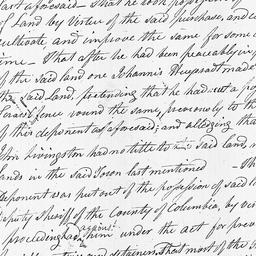 art aforesaid — That he took possession of
of Land by virtue of the said purchase, and
cultivate and improve the same for some
time — That after he had been peaceably in
of the said land one Johannis made
the said Land, pretending that he had a
fence round the same, previously to the
of this deponent as aforesaid; and alledging tha
John Livingston had no title to said land,
lands in the said Town last mentioned — th
Deponent was put out of the possession of said l
Deputy Sheriff of the County of Columbia, by vi
proceeding had against him under the act for prev
and detainers, That most of the